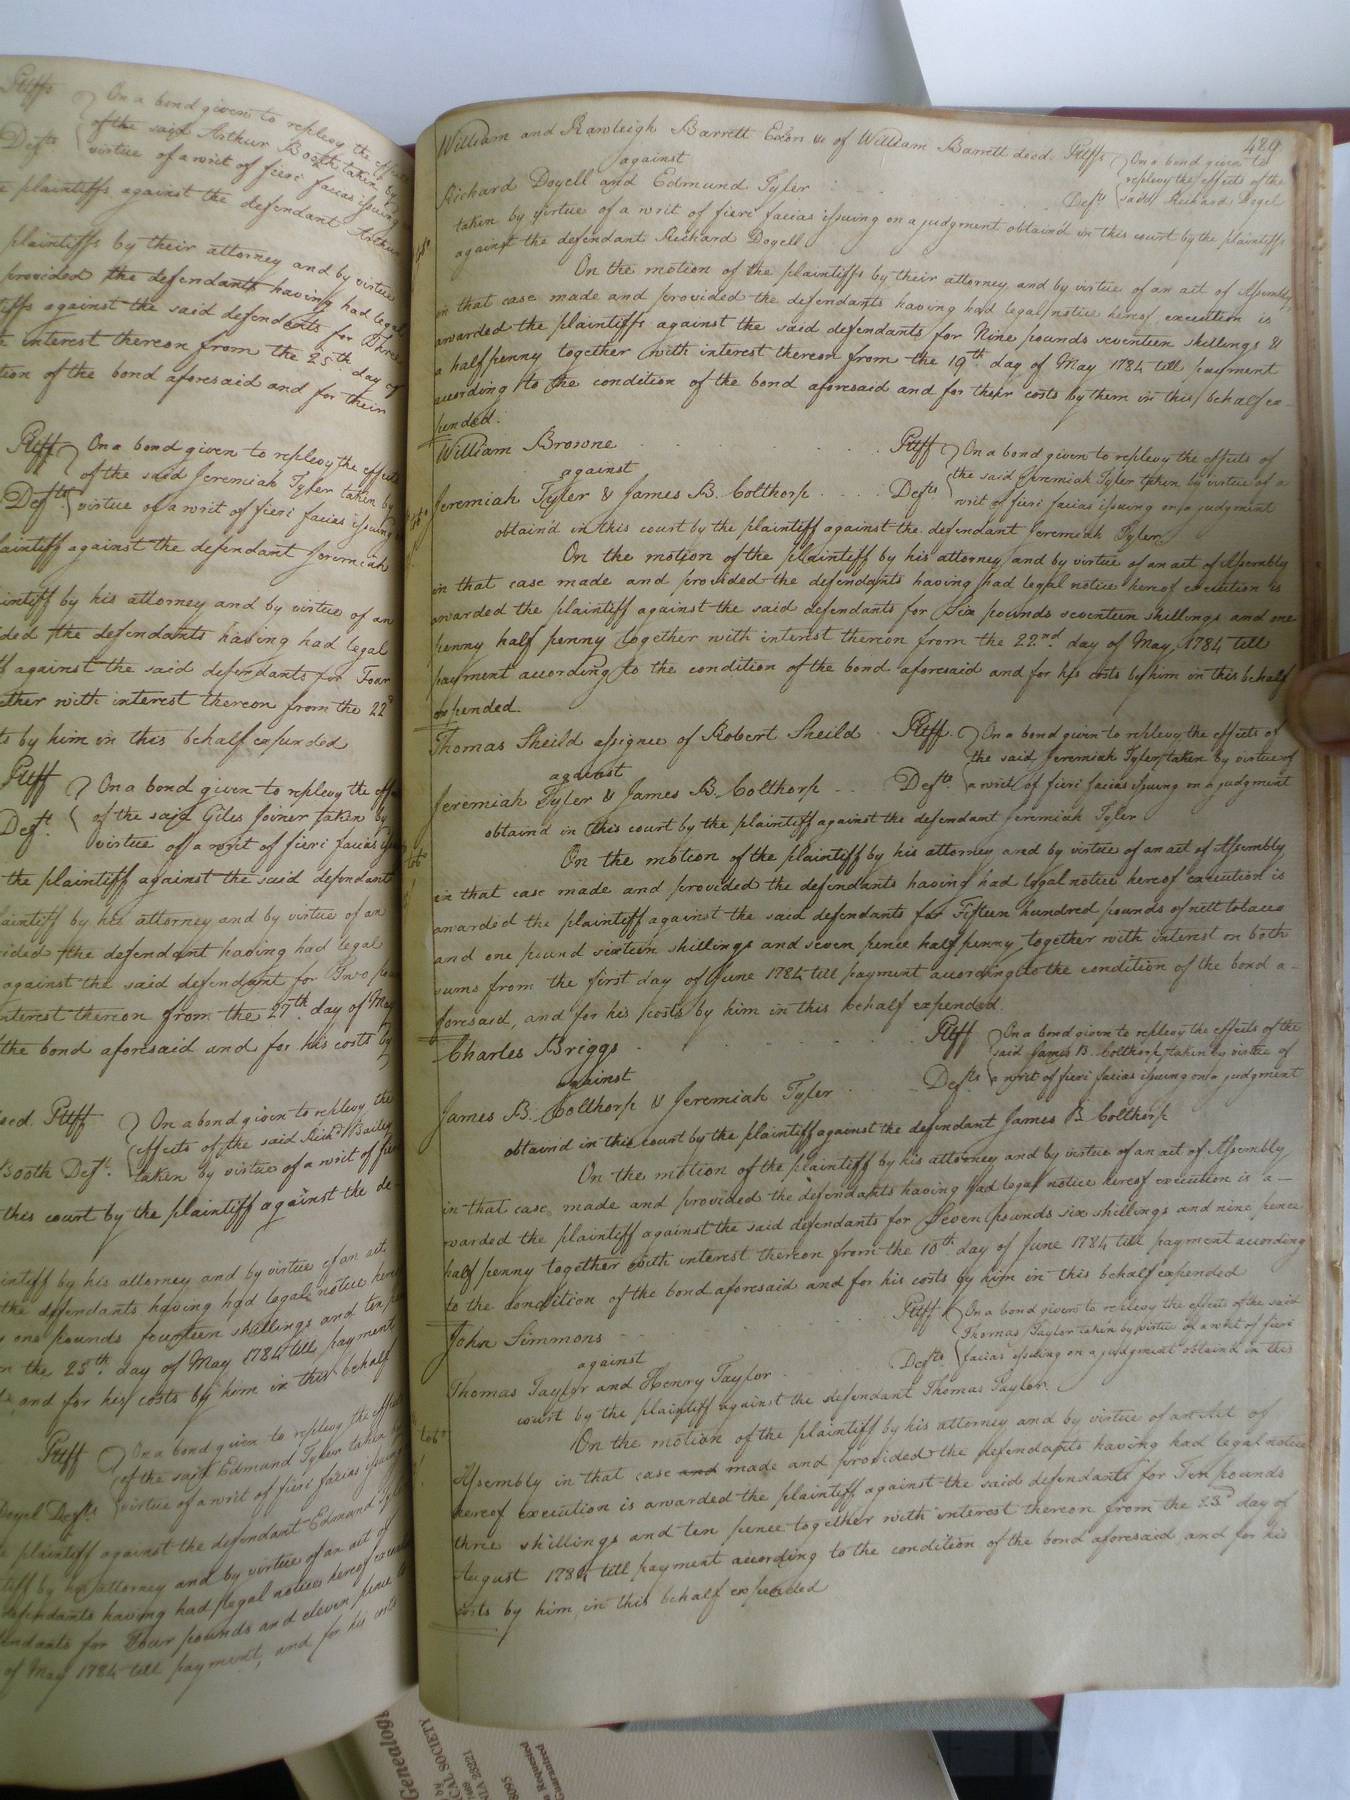 Pltffs
On a bond given to replevy the effects
of the said Arthur Booth taken by
Defts
virtue of a writ of fieri facias issuing
plaintiffs against the defendant Arthur
plaintiffs by their attorney and by virtue
provided the defendants having had legal
tiffs against the said defendants for Three
interest thereon from the 25th day of
tion of the bond aforesaid and for their
Pltff
On a bond given to replevy the effects
of the said Jeremiah Tyler taken by
Defts
virtue of a writ of fieri facias issuing
laintiff against the defendant Jeremiah
intiff by his attorney and by virtue of an
ided the defendants having had legal
ff against the said defendants for Four
ether with interest thereon from the 22d
ts by him in this behalf expended
Pltff
On a bond given to replevy the eff
of the said Giles Joiner taken by
Deft.
virtue of a writ of fieri facias
the plaintiff against the said defendant
laintiff by his attorney and by virtue of an
vided the defendant having had legal
against the said defendant for Two
nterest thereon from the 27th. day of May
the bond aforesaid and for his costs by
Pltff
On a bond given to replevy the
effects of the said Richd. Bailey
Booth Deft.
taken by virtue of a writ of fieri
this court by the plaintiff against the de-
intiff by his attorney and by virtue of an act
the defendants having had legal notice here
one pounds fourteen shillings and ten
m the 25th. day of May 1784 till payment
and for his costs by him in this behalf
Pltff
On a bond given to replevy the effects
of the said Edmund Tyler taken by
Doyel Defts.
virtue of a writ of fieri facias issuing
plaintiff against the defendant Edmund Tyler
tiff by his attorney and by virtue of an act of
defendants having had legal notice hereof
endants for Four pounds and eleven pence
of May 1784 till payment, and for his costs
489
William and Rawleigh Barrett Exōrs &c of William Barrett decd. Pltffs
On a bond given to
against
replevy the effects of the
Richard Doyell and Edmund Tyler
Defts
said Richard Doyel
taken by virtue of a writ of fieri facias issuing on a judgment obtaind in this court by the plaintiffs
against the defendant Richard Doyell
On the motion of the plaintiffs by their attorney, and by virtue of an act of Assembly
in that case made and provided the defendants having had legal notice hereof, execution is
awarded the plaintiffs against the said defendants for Nine pounds seventeen shillings &
a halfpenny together with interest thereon from the 19th. day of May 1784 till payment
according to the condition of the bond aforesaid and for their costs by them in this behalf ex-
pended.
William Browne
Pltff
On a bond given to replevy the effects of
against
the said Jeremiah Tyler taken by virtue of a
Jeremiah Tyler & James B. Colthorp
Defts
writ of fieri facias issuing on a judgment
obtaind in this court by the plaintiff against the defendant Jeremiah Tyler
On the motion of the plaintiff by his attorney, and by virtue of an act of Assembly
in that case made and provided the defendants having had legal notice hereof execution is
awarded the plaintiff against the said defendants for Six pounds seventeen shillings and one
penny half penny together with interest thereon from the 22nd. day of May, 1784 till
payment according to the condition of the bond aforesaid and for his costs by him in this behalf
expended.
Thomas Sheild assignee of Robert Sheild
Pltff.
On a bond given to replevy the effects of
against
the said Jeremiah Tyler taken by virtue of
Jeremiah Tyler & James B. Colthorp
Defts.
a writ of fieri facias issuing on a judgment
obtaind in this court by the plaintiff against the defendant Jeremiah Tyler
tobo
On the motion of the plaintiff by his attorney and by virtue of an act of Assembly
in that case made and provided the defendants having had legal notice hereof execution is
awarded the plaintiff against the said defendants for Fifteen hundred pounds of nett tobacco
and one pound sixteen shillings and seven pence halfpenny together with interest on both
sums from the first day of June 1784 till payment according to the condition of the bond a-
foresaid, and for his costs by him in this behalf expended.
Charles Briggs
Pltff
On a bond given to replevy the effects of the
against
said James B. Colthorp, taken by virtue of
James B. Colthorp & Jeremiah Tyler
Defts
a writ of fieri facias issuing on a judgment
obtaind in this court by the plaintiff against the defendant James B. Colthorp
On the motion of the plaintiff by his attorney and by virtue of an act of Assembly
in that case made and provided the defendants having had legal notice hereof execution is a-
warded the plaintiff against the said defendants for Seven pounds six shillings and nine pence
half penny together with interest thereon from the 10th. day of June 1784 till payment according
to the condition of the bond aforesaid and for his costs by him in this behalf expended
John Simmons
Pltff
On a bond given to replevy the effects of the said
against
Thomas Taylor taken by virtue of a writ of fieri
Thomas Taylor and Henry Taylor
Defts
facias issuing on a judgment obtaind in this
court by the plaintiff against the defendant Thomas Taylor
tobo
On the motion of the plaintiff by his attorney and by virtue of an Act of
Assembly in that case and made and provided the defendants having had legal notice
hereof execution is awarded the plaintiff against the said defendants for Ten pounds
three shillings and ten pence together with interest thereon from the 23d. day of
August 1784 till payment according to the condition of the bond aforesaid, and for his
costs by him in this behalf expended
Genealog
CAL SOCIETY